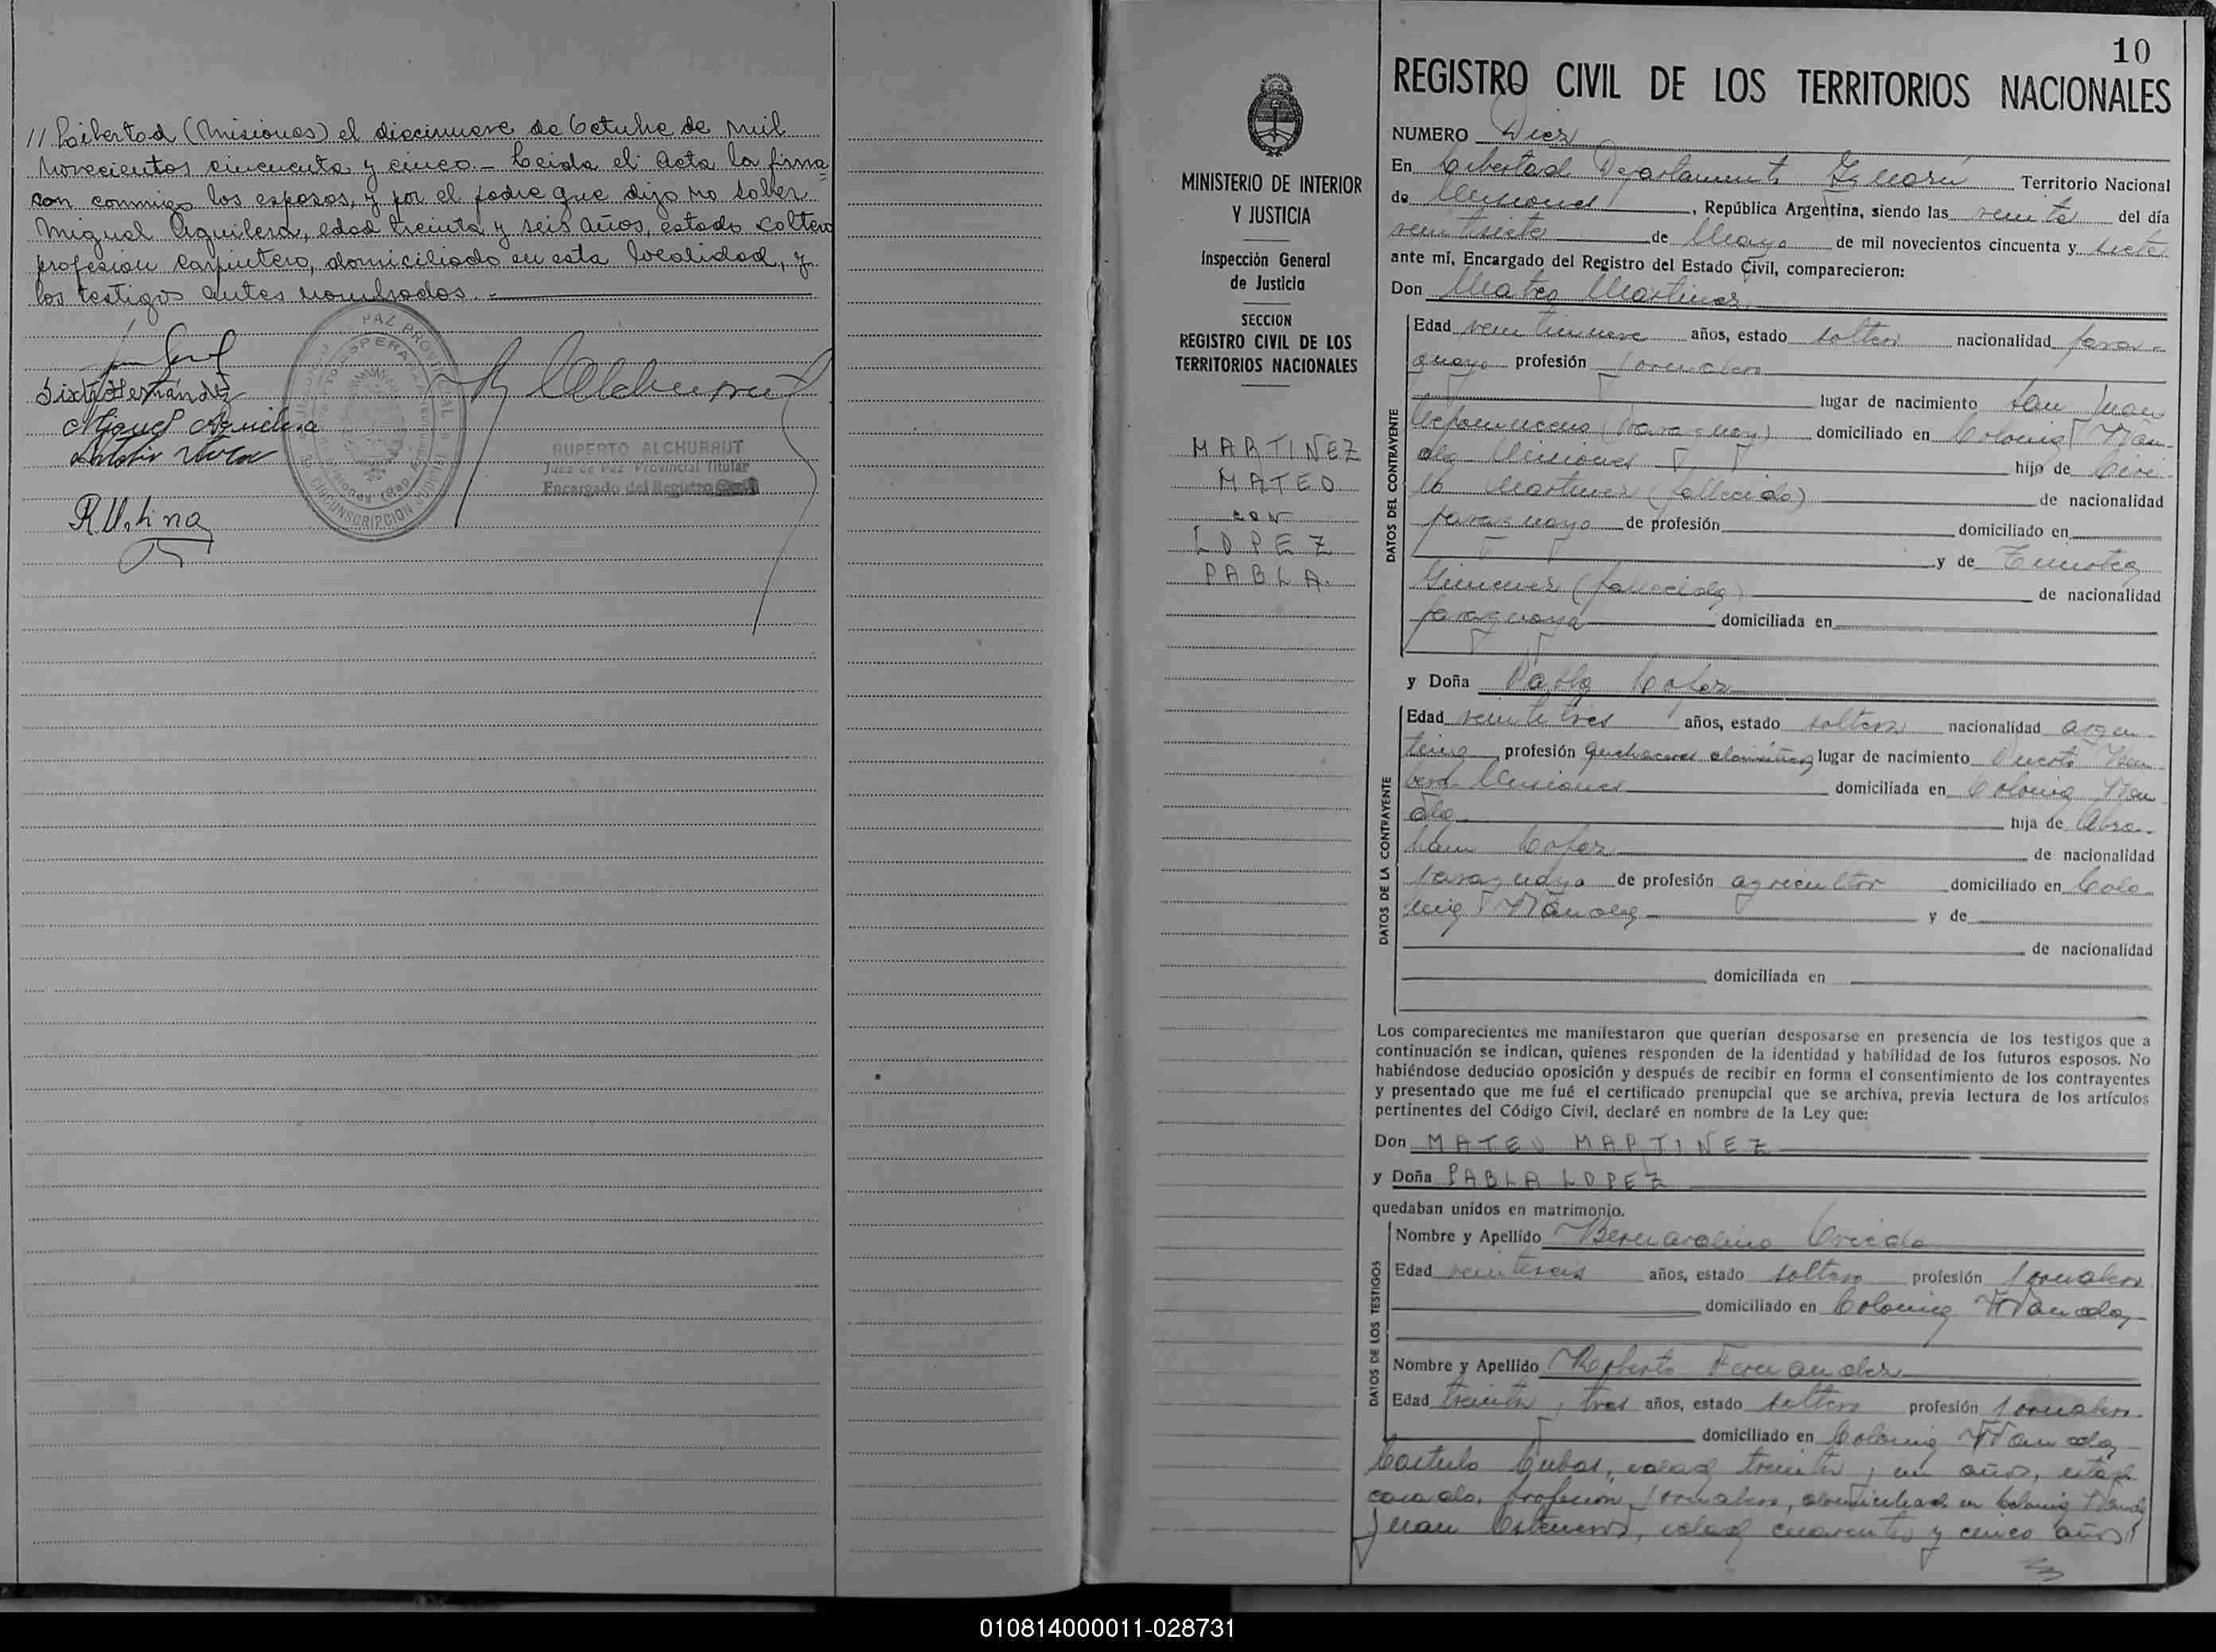 // Libertad (Misiones) el diecinueve de Octubre de mil
novecientos cincuenta y cinco.- Leida el Acta la firma=
con conmigo los esposos, y por el padre que dijo no saber
Miguel Aguilera, edad treinta y seis años, estado soltero
profesion carpintero, domiciliado en esta localidad, y
los testigos antes nombrados.-
Sixto Hernández
Miguel Aguilera
PAZ PROVINCIAL
ESPERA
CIRCUNSCRIPCION
RUPERTO ALCHURRUT
Juez de Paz Provincial Titular
Encargado del Registro Civil
MINISTERIO DE INTERIOR
Y JUSTICIA
Inspección General
de Justicia
SECCION
REGISTRO CIVIL DE LOS
TERRITORIOS NACIONALES
MARTINEZ
MATEO
con
LOPEZ
PABLA.
10
REGISTRO CIVIL DE LOS TERRITORIOS NACIONALES
NUMERO Diez
En Libertad Departamento Iguazú Territorio Nacional
de Misiones, República Argentina, siendo las veinte del día
veintisiete de Mayo de mil novecientos cincuenta y siete
ante mí, Encargado del Registro del Estado Civil, comparecieron:
Don Mateo Martinez
DATOS DEL CONTRAYENTE
Edad veintinueve años, estado soltero nacionalidad para-
guayo profesión jornalero
lugar de nacimiento San Juan
Nepomuceno (Paraguay) domiciliado en Colonia Wan-
da Misiones hijo de Ciri-
lo Martinez (fallecido) de nacionalidad
paraguayo de profesión domiciliado en
y de Timotea
Gimenez (fallecida) de nacionalidad
paraguaya domiciliada en
y Doña Pabla Lopez
DATOS DE LA CONTRAYENTE
Edad veintitres años, estado soltera nacionalidad argen-
tina profesión quehaceres domésticos lugar de nacimiento Puerto
Misiones domiciliada en Colonia Wan
da hija de Abra-
ham Lopez de nacionalidad
paraguayo de profesión agricultor domiciliado en Colo
nia Wanda y de
de nacionalidad
domiciliada en
Los comparecientes me manifestaron que querían desposarse en presencia de los testigos que a
continuación se indican, quienes responden de la identidad y habilidad de los futuros esposos. No
habiéndose deducido oposición y después de recibir en forma el consentimiento de los contrayentes
y presentado que me fué el certificado prenupcial que se archiva, previa lectura de los artículos
pertinentes del Código Civil, declaré en nombre de la Ley que:
Don MATEO MARTINEZ
y Doña PABLA LOPEZ
quedaban unidos en matrimonio.
DATOS DE LOS TESTIGOS
Nombre y Apellido Bernardino Oviedo
Edad veintiseis años, estado soltero profesión jornalero
domiciliado en Colonia Wanda
Nombre y Apellido Roberto Fernandez
Edad treinta y tres años, estado soltero profesión jornalero
domiciliado en Colonia Wanda
Castulo Cubas, edad treinta y un años, estado
casado, profesion jornalero, domiciliado en Colonia Wanda
Juan, edad cuarenta y cinco años //
010814000011-028731